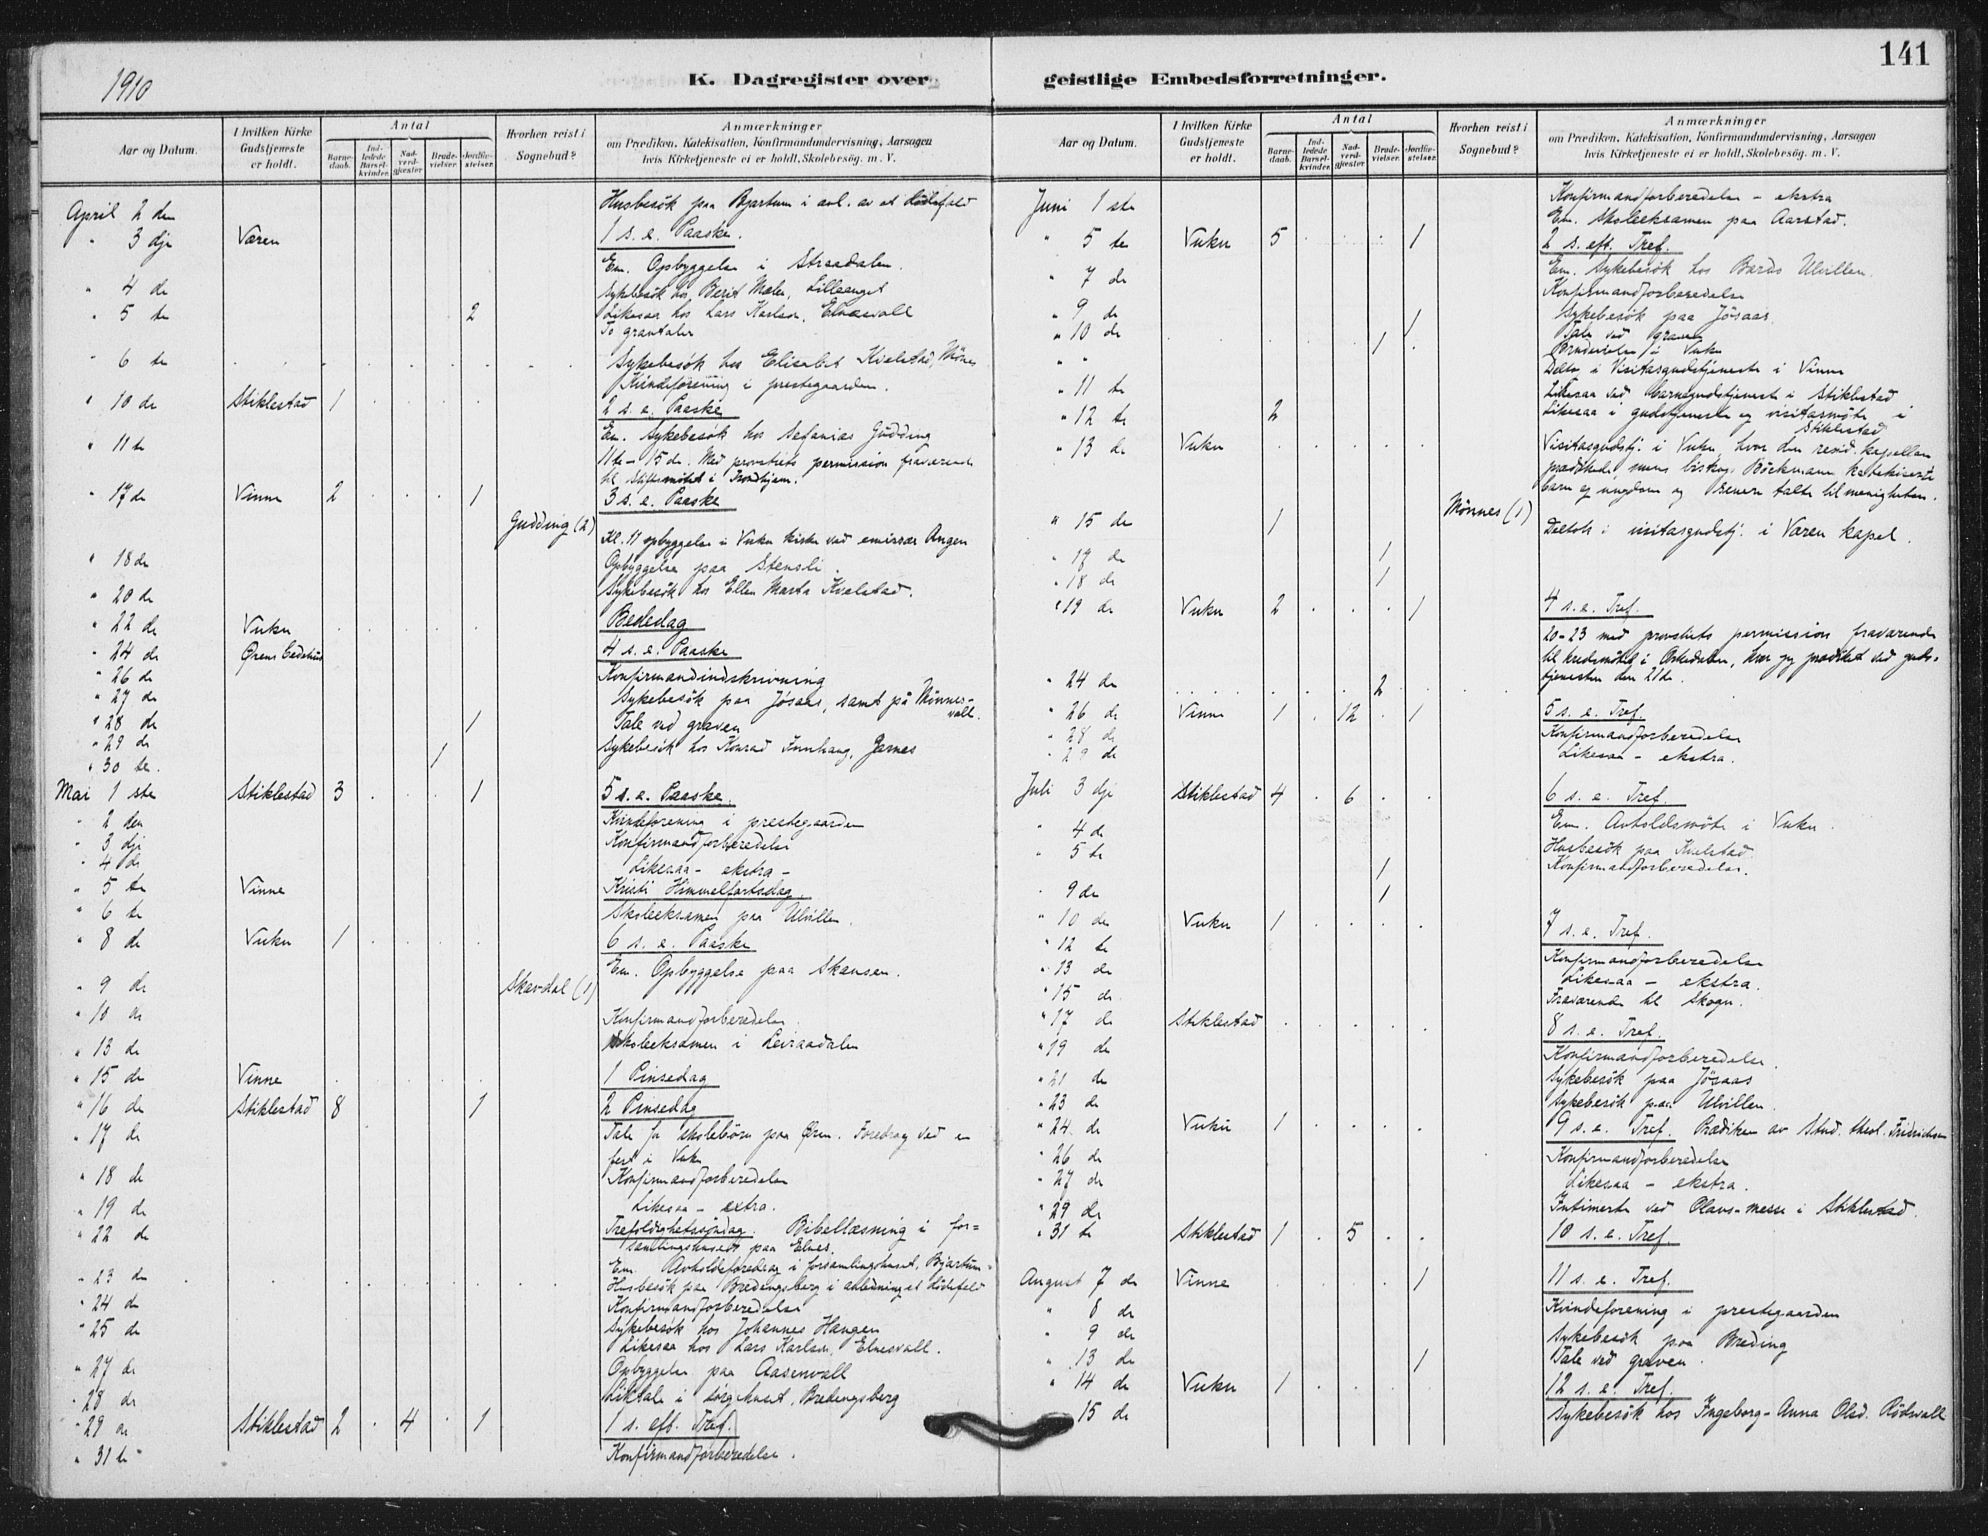 141
1910
K. Dagregister over geistlige Embedsforretninger.
Aar og Datum. I hvilken Kirke Gudstjeneste er holdt. Antal Barnedaab. Indledede Barselkvinder. Nadverdgjester Brudevielser. Jordfæstelser. Hvorhen reist i Sognebud? Anmærkninger om Prædiken, Katekisation, Konfirmandundervisning, Aarsagen hvis Kirketjeneste ei er holdt, Skolebesøg. m. V.
April 2 den Husbesök paa Bjartum i anl. av et dödsfald
" 3 dje Væren 1 s. e. Paaske.
Em. Opbyggelse i Straadalen.
" 4 de Sykebesök hos Berit Mælen, Lilleenget
" 5 te 2 Likesaa hos Lars Karlsen, Elnesvall
To gravtaler
" 6 te Sykebesök hos Elisabet Kvelstad,
Kvindeforening i prestegaarden.
" 10 de Stiklestad 1 2 s. e. Paaske
Em. Sykebesök hos Sefanias Gudding
" 11 te 11te - 15 de. Med provstiets permission fraværende
til Stiftsmötet i Trondhjem.
" 17 de Vinne 2 1 3 s. e. Paaske
Gudding (2)
Kl. 11 opbyggelse i Vuku kirke ved emissær Angen
" 18 de Opbyggelse paa Stensli.
" 20 de Sykebesök hos Ellen Marta Kvelstad.
" 22 de Vuku Bededag
" 24 de Ørens bedehus 4 s. e. Paaske
" 26 de Konfirmandindskrivning
" 27 de Sykebesök paa Jösaas, samt på Mönnesvall.
" 28 de 1 Tale ved graven
" 29 de Sykebesök hos Konrad Garnes
" 30 te. 1
Mai 1 ste Stiklestad 3 1 5 s. e. Paaske.
" 2 den Kvindeforening i prestegaarden
" 3 dje Konfirmandforberedelse
" 4 de Likesaa - ekstra -
" 5 te Vinne Kristi Himmelfartsdag.
" 6 te Skoleeksamen paa Ulvillen.
" 8 de Vuku 1 6 s. e. Paaske
Em. Opbyggelse paa Skansen.
" 9 de Skavdal (1)
" 10 de Konfirmandforberedelse.
" 13 de Skoleeksamen i Leiraadalen
" 15 de Vinne 1 Pinsedag
" 16 de Stiklestad 8 1 2 Pinsedag
" 17 de Tale for skolebörn paa Ören. Foredrag ved en
fest i Vuku
" 18 de Konfirmandforberedelse
" 19 de Likesaa - extra.
" 22 de Trefoldighetssöndag. Bibellæsning i for=
samlingshuset paa Elnes.
Em. Avholdsforedrag i forsamlingshuset, Bjartum
" 23 de Husbesök paa Bredingsberg i anledning et dödsfald
" 24 de Konfirmandforberedelse
" 25 de Sykebesök hos Johannes Haugen
Likesaa hos Lars Karlsen, Elnesvall.
" 27 de Opbyggelse paa Aasenvall
" 28 de Liktale i sörgehuset, Bredingsberg
" 29 de Stiklestad 2 4 1 1 s. eft. Tref.
" 31 te Konfirmandforberedelse.
Aar og Datum. I hvilken Kirke Gudstjeneste er holdt. Antal Barnedaab. Indledede Barselkvinder. Nadverdgjester Brudevielser. Jordfæstelser. Hvorhen reist i Sognebud? Anmærkninger om Prædiken, Katekisation, Konfirmandundervisning, Aarsagen hvis Kirketjeneste ei er holdt, Skolebesøg. m. V.
Juni 1 ste Konfirmandforberedelse - ekstra
Em. Skoleeksamen paa Aarstad.
" 5 te Vuku 5 1 2 s. eft. Tref.
Em. Sykebesök hos Bardo Ulvillen.
" 7 de Konfirmandforberedelse
" 9 de Sykebesök paa Jösaas.
" 10 de 1 Tale ved graven
" " 1 Brudevielse i Vuku
" 11 te Deltog i Visitasgudstjeneste i Vinne
Likesaa ved barnegudstjeneste i Stiklestad
" 12 te 2 Likesaa i gudstjeneste og visitasmöte i
Stiklestad
" 13 de Vuku Visitasgudstj. i Vuku, hvor den resid. kapellan
prædikede, mens biskop Böckmann katekiserte
barn og ungdom og talte til menigheten.
Mönnes (1)
" 15 de 1 Deltok i visitasgudstj. i Væren kapel.
" 17 de 1
" 18 de 1
" 19 de Vuku 2 1 4 s. e. Tref.
20-23 med provstiets permission fraværende
til kredsmöte i Orkedalen, hvor jeg prædiket ved guds=
tjenesten den 21de.
" 24 de 2
" 26 de Vinne 1 12 1 5 s. e. Tref.
" 28 de Konfirmandforberedelse
" 29 de Likesaa - ekstra.
Juli 3 dje Stiklestad 4 6 6 s. e. Tref.
Em. Avholdsmöte i Vuku.
" 4 de Husbesök paa Kvelstad.
" 5 te Konfirmandforberedelse.
1
" 9 de 1
" 10 de Vuku 1 7 s. e. Tref.
" 12 te Konfirmandforberedelse
" 13 de Likesaa - ekstra.
" 15 de Fraværende til Skogn.
" 17 de Stiklestad 8 s. e. Tref.
" 19 de Konfirmandforberedelse.
" 21 de Sykebesök paa Jösaas
" 23 de Sykebesök paa Ulvillen.
" 24 de Vuku 1 9 s. e. Tref. Prædiken av Stud. theol. Fredrichsen
" 26 de Konfirmandforberedelse
" 27 de Likesaa - ekstra.
" 29 de Intimerte ved Olavs-messe i Stiklestad.
" 31 te Stiklestad 1 5 10 s. e. Tref.
August 7 de Vinne 1 11 s. e. Tref.
" 8 de Kvindeforening i prestegaarden
" 9 de Sykebesök paa Breding
" 13 de 1 Tale ved graven.
" 14 de Vuku 1 12 s. e. Tref.
15 de Sykebesök hos Ingeborg-Anna Olsd. Rödsvall